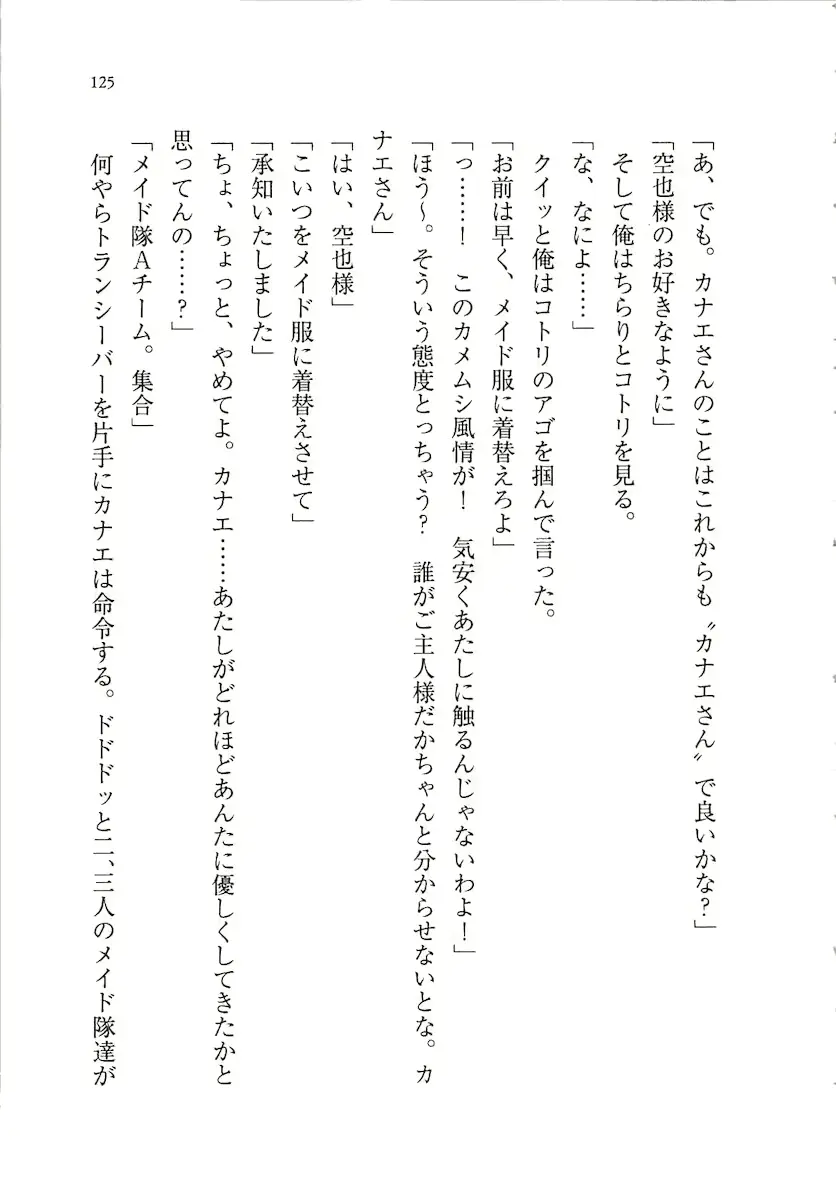 125
「あ、でも。カナエさんのことはこれからも〝カナエさん〟で良いかな?」
「空也様のお好きなように」
そして俺はちらりとコトリを見る。
「な、なによ……」
クイッと俺はコトリのアゴを掴んで言った。
「お前は早く、メイド服に着替えろよ」
「っ……! このカメムシ風情が! 気安くあたしに触るんじゃないわよ!」
「ほう～。そういう態度とっちゃう? 誰がご主人様だかちゃんと分からせないとな。カ
ナエさん」
「はい、空也様」
「こいつをメイド服に着替えさせて」
「承知いたしました」
「ちょ、ちょっと、やめてよ。カナエ……あたしがどれほどあんたに優しくしてきたかと
思ってんの……?」
「メイド隊Aチーム。集合」
何やらトランシーバーを片手にカナエは命令する。ドドドッと二、三人のメイド隊達が